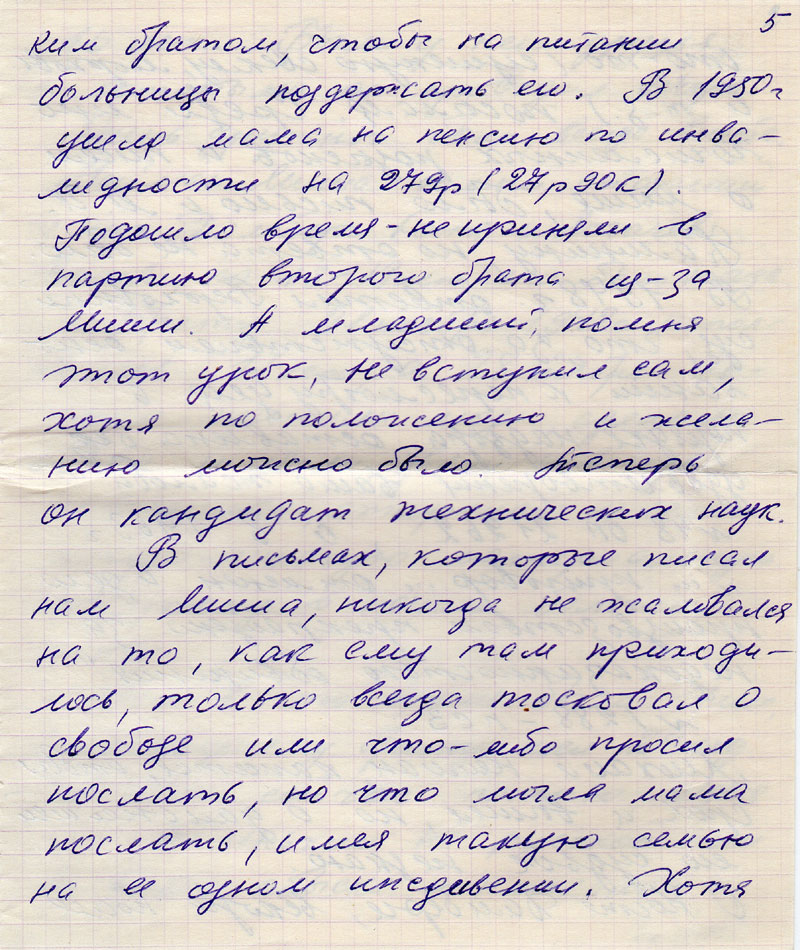 5
ким братом, чтобы на питании
больницы поддержать его. В 1950г
ушла мама на пенсию по инва-
лидности на 279р (27р90к).
Подошло время - не приняли в
партию второго брата из-за
Миши. А младший, помня
этот урок, не вступил сам,
хотя по положению и жела-
нию можно было. Теперь
он кандидат технических наук.
В письмах, которые писал
нам Миша, никогда не жаловался
на то, как ему там приходи-
лось, только всегда тосковал о
свободе или что-либо просил
послать, но что могла мама
послать, имея такую семью
на ее одном иждивении. Хотя